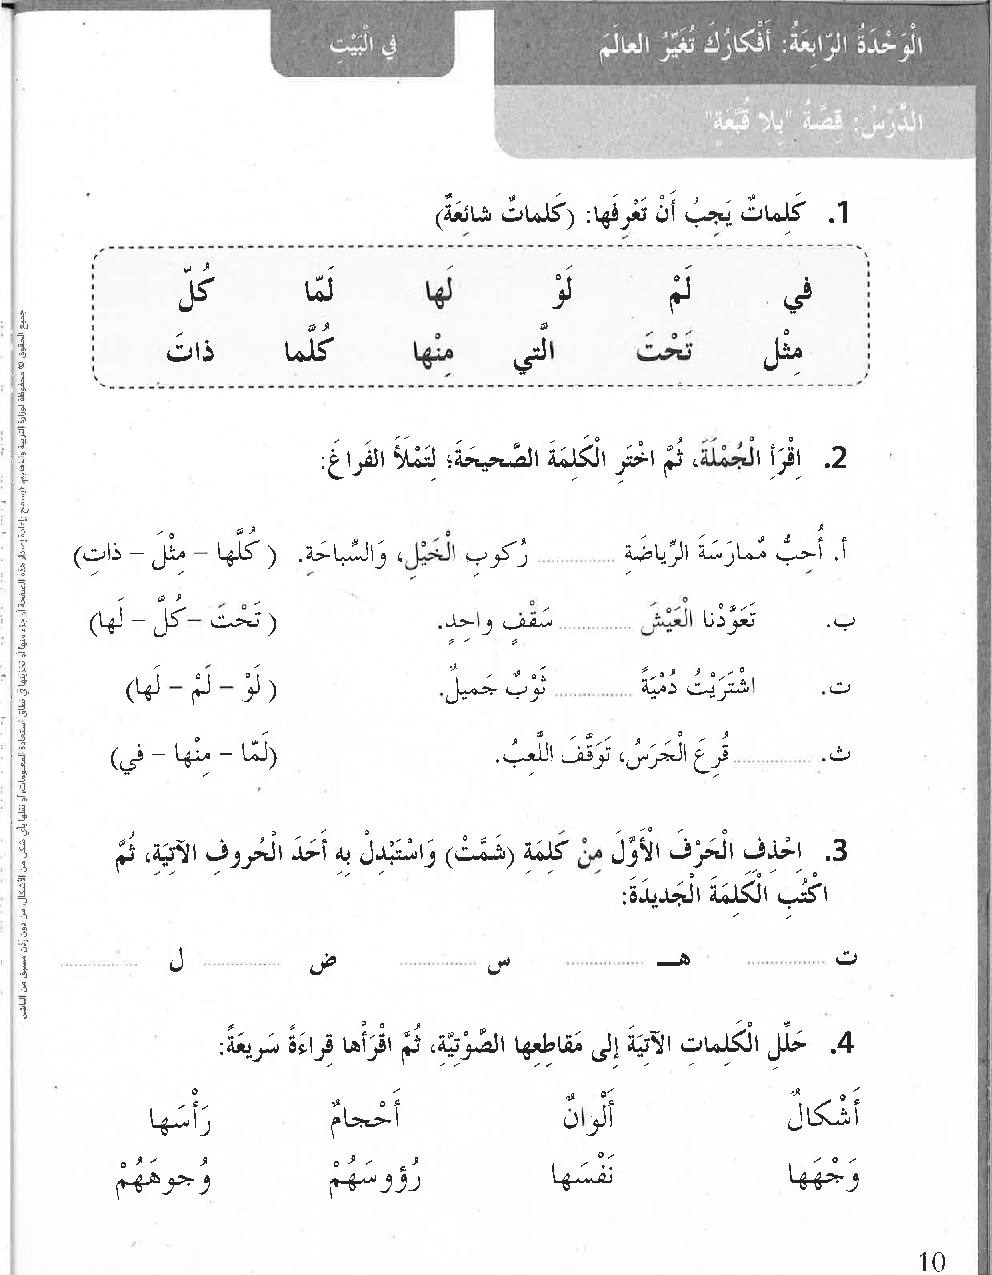 الْوَحْدَةُ الرّابِعَةُ: أَفْكارُكَ تُغَيِّرُ العالَمَ
في الْبَيْتِ
الدَّرْسُ: قِصَّةُ "بِلا قُبَّعَةٍ"
1. كَلِماتٌ يَجِبُ أَنْ تَعْرِفَها: (كَلِماتٌ شائِعَةٌ)
في لَمْ لَوْ لَها لَمّا كُلَّ
مِثْل تَحْتَ الَّتي مِنْها كُلَّما ذاتَ
2. اِقْرَأِ الْجُمْلَةَ، ثُمَّ اخْتَرِ الْكَلِمَةَ الصَّحيحَةَ؛ لِتَمْلَأَ الفَراغَ:
أ. أُحِبُّ مُمارَسَةَ الرِّياضَةِ ............ رُكوبِ الْخَيْلِ، وَالسِّباحَةِ. ( كُلَّها – مِثْلَ – ذاتِ)
ب. تَعَوَّدْنا الْعَيْشَ ............ سَقْفٍ واحِدٍ. ( تَحْتَ – كُلَّ – لَها)
ت. اشْتَرَيْتُ دُمْيَةً ............ ثَوْبٌ جَميلٌ. ( لَوْ – لَمْ – لَها)
ث. ............ قُرِعَ الْجَرَسُ، تَوَقَّفَ اللَّعِبُ. (لَمّا – مِنْها – في)
3. احْذِفِ الْحَرْفَ الْأَوَّلَ مِنْ كَلِمَةِ (شَمَّتْ) وَاسْتَبْدِلْ بِهِ أَحَدَ الْحُروفِ الآتِيَةِ، ثُمَّ
اكْتُبِ الْكَلِمَةَ الْجَديدَةَ:
ت ............ هـ ............ س ............ ض ............ ل ............
4. حَلِّلِ الْكَلِماتِ الْآتِيَةَ إِلى مَقاطِعِها الصَّوْتِيَّةِ، ثُمَّ اقْرَأْها قِراءَةً سَريعَةً:
أَشْكالٌ أَلْوانٌ أَحْجامٌ رَأْسَها
وَجْهَها نَفْسَها رُؤوسَهُمْ وُجوهَهُمْ
10